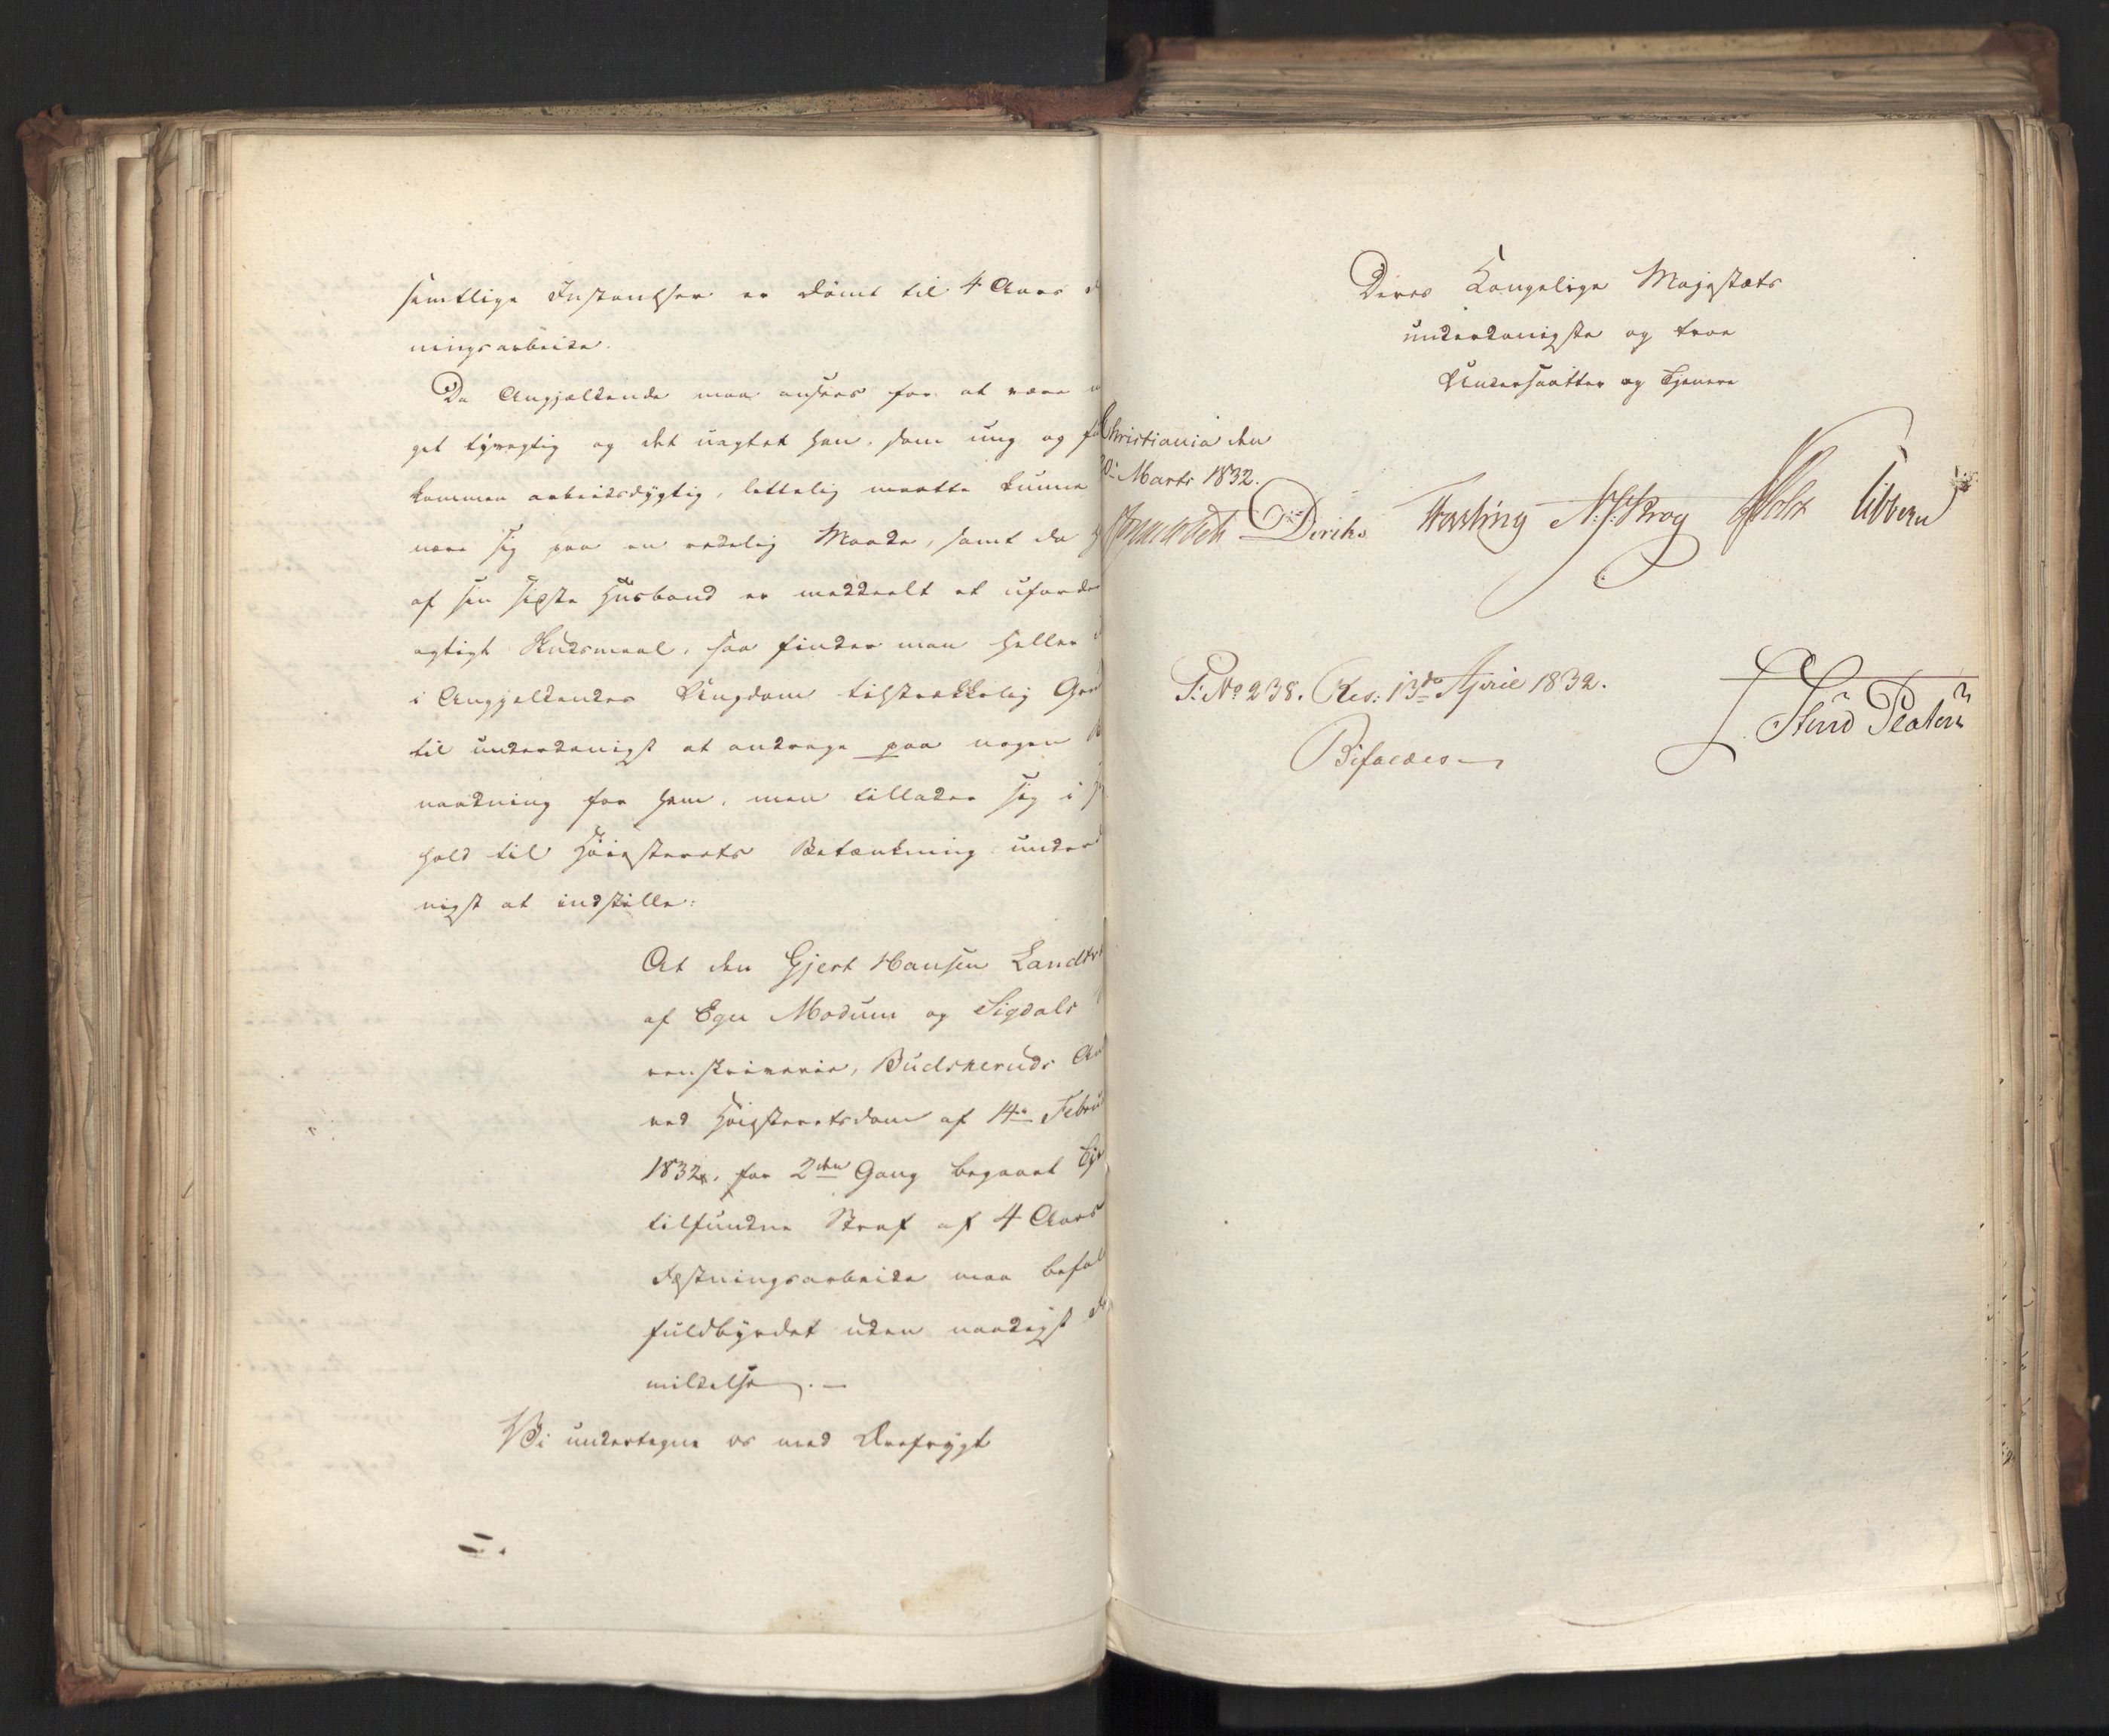 samtlige Instantser er dömt til 4 Aars
ningsarbeide.
Da Angjældende maa ansees for at være
get tyvagtig og det uagtet han, som ung og
kommen arbeidsdygtig, lettelig maatte kunne
nære sig paa en redelig Maade, samt da
af sin sidste Husbond er meddeelt et ufordee
agtigt Skudsmaal, saa finder man heller
i Angjeldendes Ungdom tilstrækkelig
til underdanigst at andrage paa nogen
naadning for ham, men tillader sig i
hold til Höiesterets Betænkning under
nigst at indstille:
At den Gjert Hansen
af Eger Modum og Sigdals
renskriverie, Budskeruds
ved Höiesteretsdom af 14de Febru
1832, for 2den Gang begaaet
tilfundne Straf af 4 Aars
Fæstningsarbeide maa befal
fuldbyrdet uden naadigst
mildelse. —
Vi undertegne os med Ærefrygt
Deres Kongelige Majestæts
underdanigste og troe
Undersaatter og Tjenere
Christiania den
Marts 1832.
Diriks Fasting N. J. Krog Holst Sibbern
S: No 238. Res: 13de April 1832.
Bifaldes